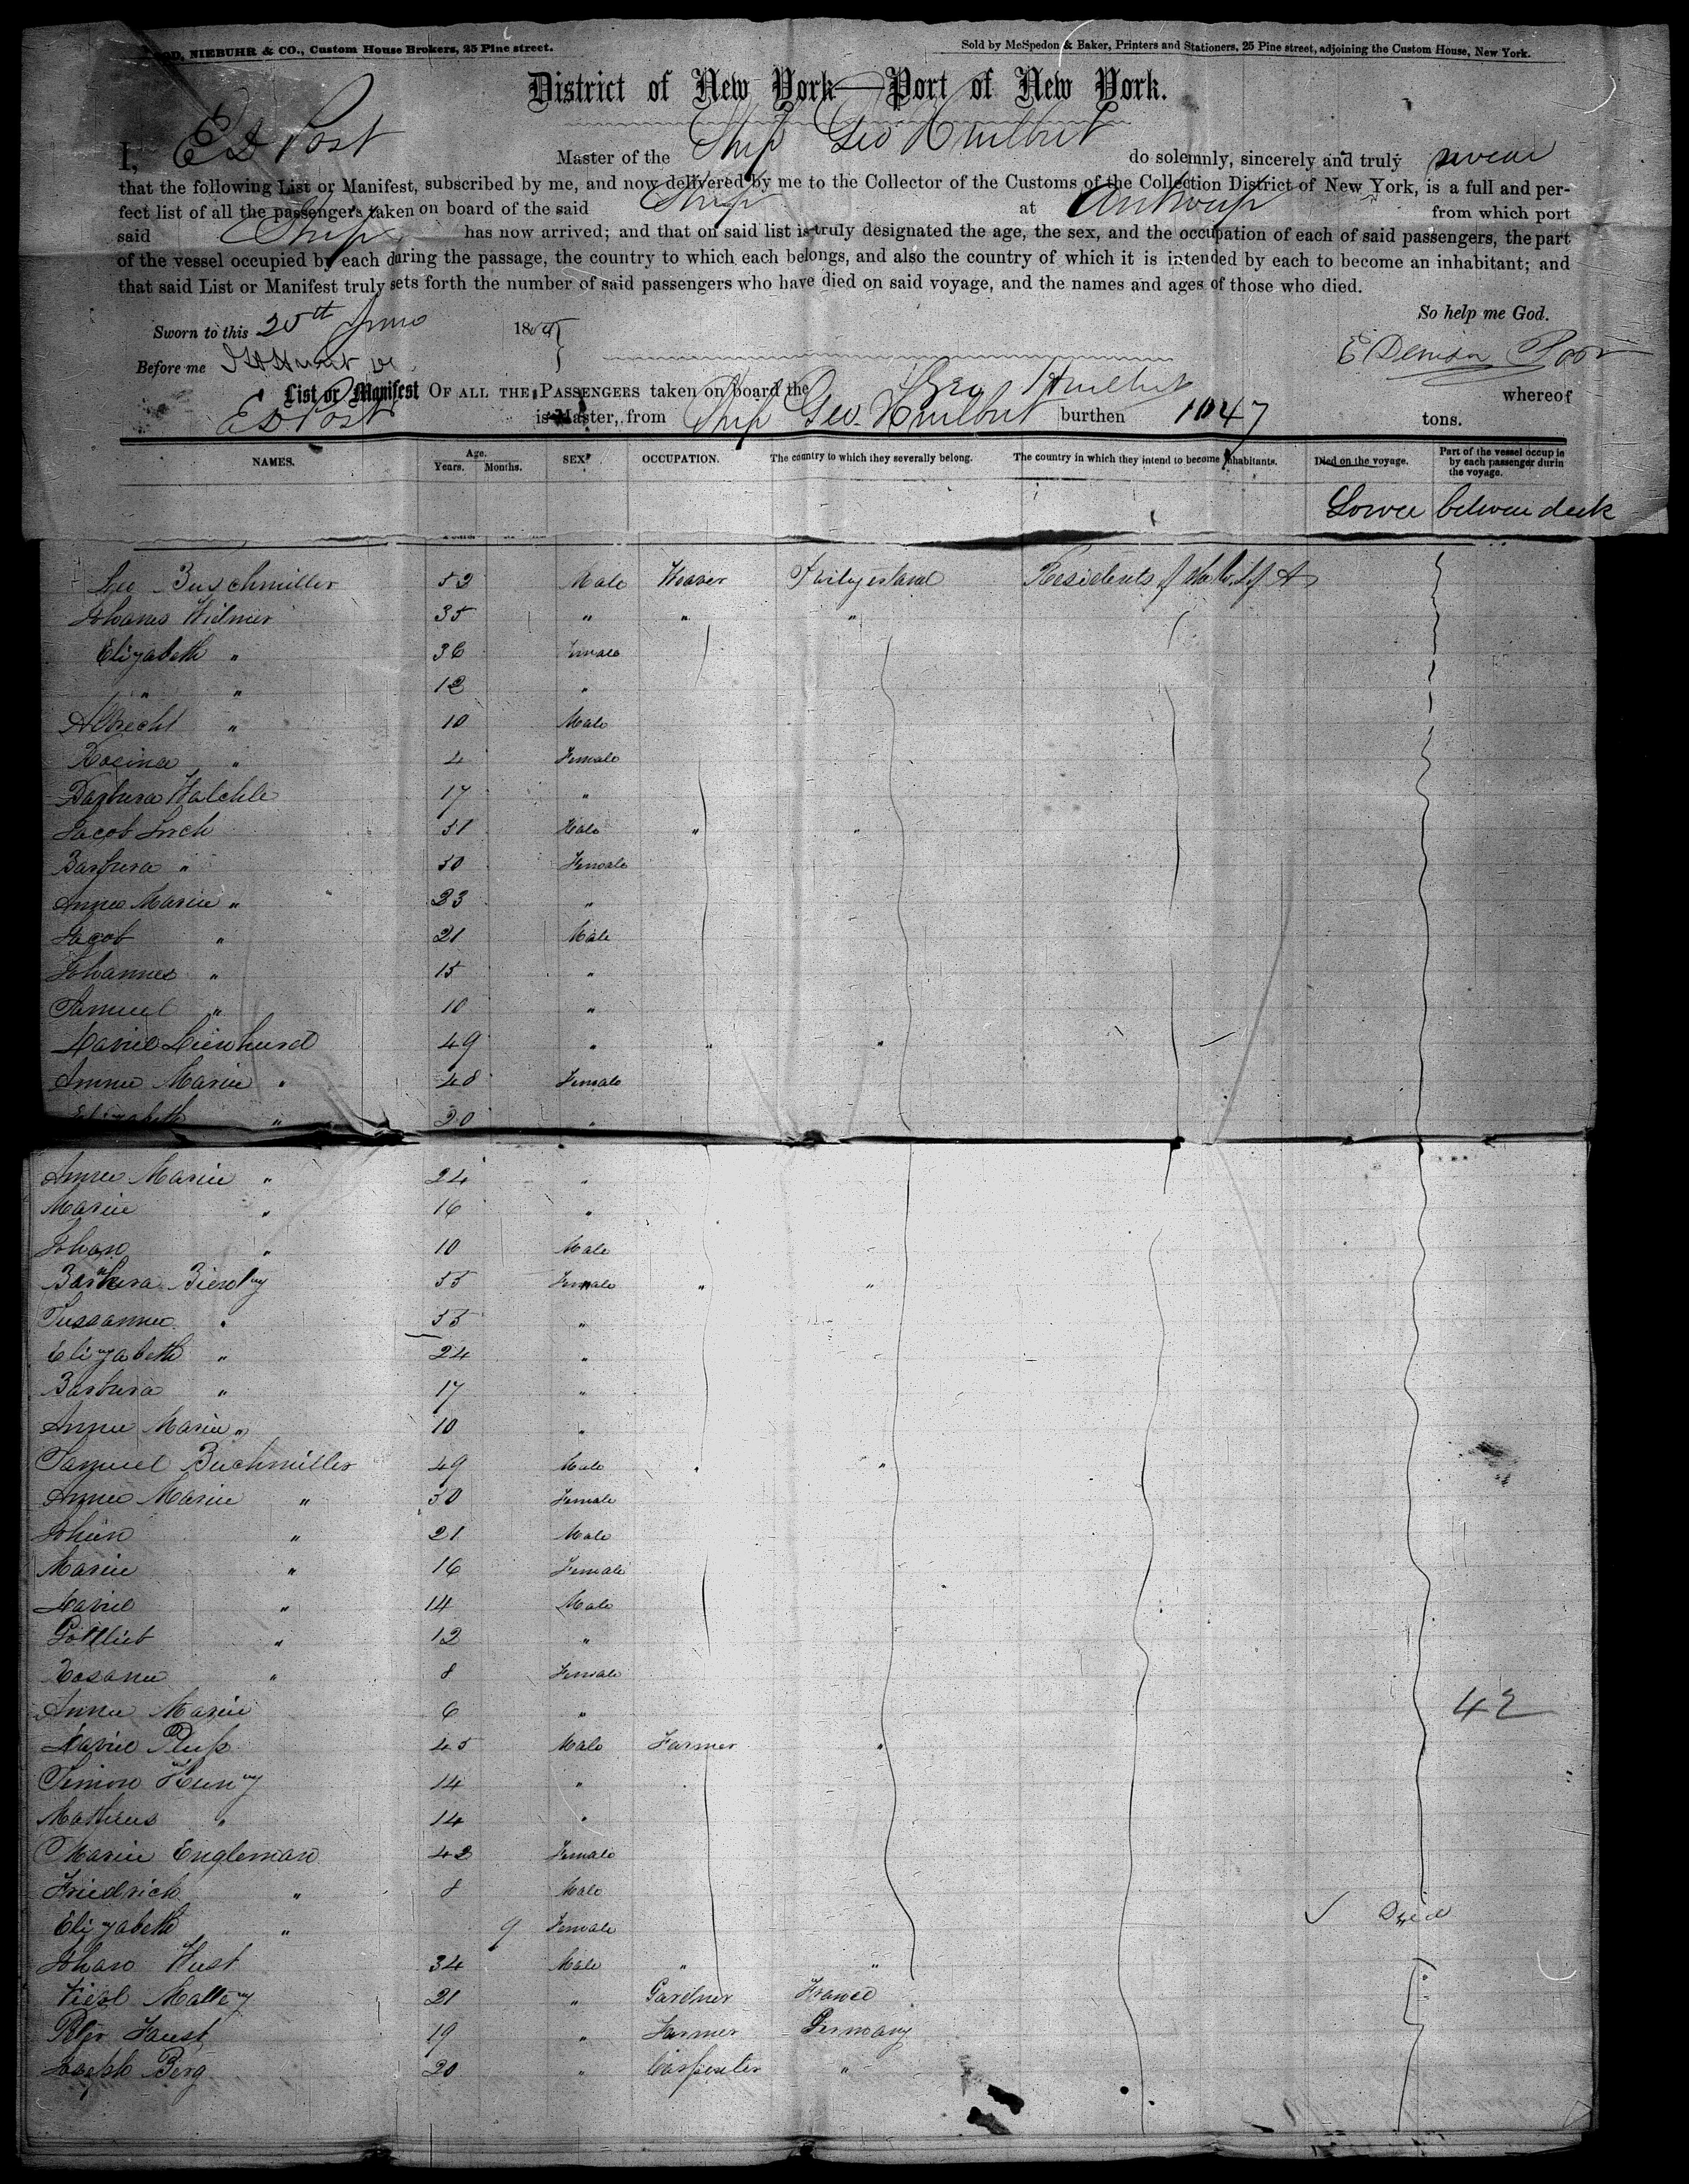 OOD, NIEBUHR & CO., Custom House Brokers, 25 Pine street.
Sold by McSpedon & Baker, Printers and Stationers, 25 Pine street, adjoining the Custom House, New York.
District of New York—Port of New York.
I, E D Post Master of the Ship Geo Hurlbut do solemnly, sincerely and truly swear
that the following List or Manifest, subscribed by me, and now delivered by me to the Collector of the Customs of the Collection District of New York, is a full and per-
fect list of all the passengers taken on board of the said Ship at Antwerp from which port
said Ship has now arrived; and that on said list is truly designated the age, the sex, and the occupation of each of said passengers, the part
of the vessel occupied by each during the passage, the country to which each belongs, and also the country of which it is intended by each to become an inhabitant; and
that said List or Manifest truly sets forth the number of said passengers who have died on said voyage, and the names and ages of those who died.
So help me God.
Sworn to this 20th June 185
Before me
E Denison Post
List or Manifest OF ALL THE PASSENGERS taken on board the Geo Hurlbut whereof
E D Post is Master, from Ship Geo. Hurlbut burthen 1047 tons.
NAMES. Age. Years. Months. SEX. OCCUPATION. The country to which they severally belong. The country in which they intend to become inhabitants. Died on the voyage. Part of the vessel occupie by each passenger durin the voyage.
Lower between deck
Buschmiller 52 Male Weaver Switzerland Residents of the U. S. of A
Johanes Widmer 35 " " "
Elizabeth " 36 Female
" " 12 "
Albrecht " 10 Male
Rosina " 4 Female
Barbara Walchle 17 "
Jacob Lüch 51 Male " "
Barbara " 50 Female
Anna Marie " 23 "
Jacob " 21 Male
Johannes " 15 "
Samuel " 10 "
David Lienhard 49 " " "
Anna Marie " 48 Female
Elizabeth " 20 "
Anna Marie " 24 "
Marie " 16 "
Johan " 10 Male
Barbara Bienz 55 Female " "
Sussanna " 55 "
Elizabeth " 24 "
Barbara " 17 "
Anna Marie " 10 "
Samuel Buchmüller 49 Male " "
Anna Marie " 50 Female
Johan " 21 Male
Marie " 16 Female
David " 14 Male
Gottlieb " 12 "
Rosana " 8 Female
Anna Marie 6 "
42
David Plüss 45 Male Farmer "
Simon Kunz 14 "
Matheus " 14 "
Marie Engleman 42 Female
Friedrich " 8 Male
Elizabeth " 9 Female Died
Johan Wust 34 Male " "
Mattey 21 " Gardner France
Peter Faust 19 " Farmer Germany
Joseph Berg 20 " Carpenter "